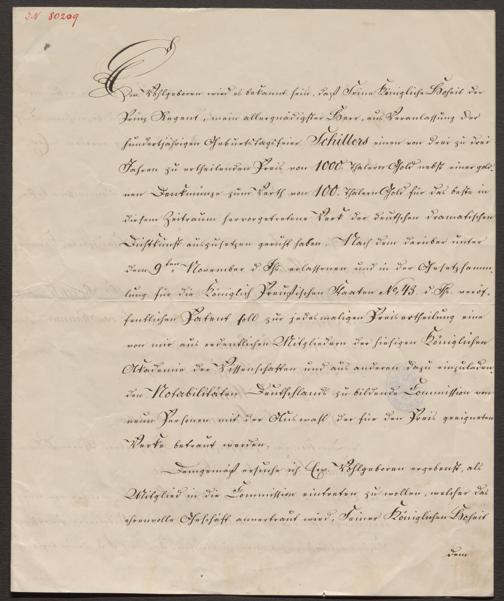 J.N. 80209
Ew. Wohlgeboren wird es bekannt sein, daß Seine Königliche Hoheit der
Prinz Regent, mein allergnädigster Herr, aus Veranlassung der
hundertjährigen Geburtstagsfeier Schillers einen von drei zu drei
Jahren zu ertheilenden Preis von 1000 Thalern Gold nebst einer gol-
nen Denkmünze zum Werth von 100. Thalern Gold für das beste in
diesem Zeitraum hervorgetretene Werk der deutschen dramatischen
Dichtkunst auszusetzen geruht haben. Nach dem darüber unter
dem 9ten November d. Js. erlassenen und in der Gesetzsamm-
lung für die Königlich Preußischen Staaten No. 43. d. Js. veröf-
fentlichten Patent soll zur jedesmaligen Preisertheilung eine
von mir aus ordentlichen Mitgliedern der hiesigen Königlichen
Akademie der Wissenschaften und aus anderen dazu einzuladen-
den Notabilitäten Deutschlands zu bildende Commission von
neun Personen mit der Auswahl der für den Preis geeigneten
Werke betraut werden.
Demgemäß ersuche ich Ew. Wohlgeboren ergebenst, als
Mitglied in die Commission eintreten zu wollen, welcher das
ehrenvolle Geschäft anvertraut wird, Seiner Königlichen Hoheit
dem